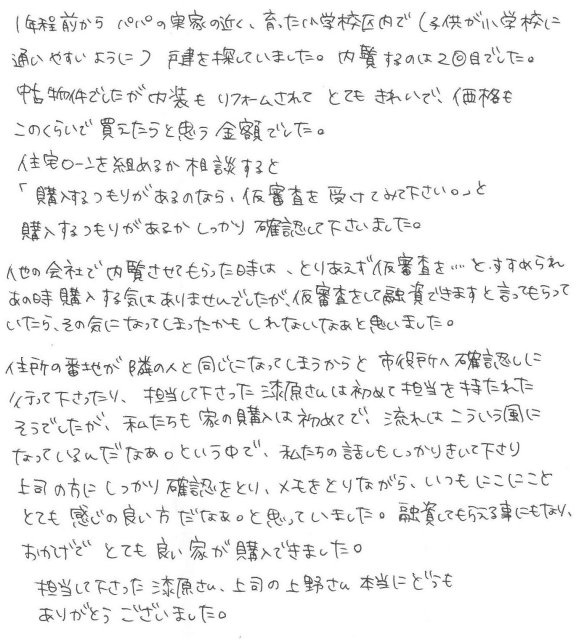 1年程前から パパの実家の近く、育った小学校区内で (子供が小学校に
通いやすいように) 戸建を探していました。 内覧するのは2回目でした。
中古物件でしたが内装も リフォームされて とても きれいで、価格も
このくらいで 買えたらと思う 金額でした。
住宅ローンを組めるか 相談すると
「購入するつもりがあるのなら、仮審査を 受けてみて下さい。」と
購入するつもりがあるか しっかり 確認して下さいました。
他の会社で 内覧させてもらった時は、とりあえず仮審査を…と、すすめられ
あの時 購入 する気はありませんでしたが、仮審査をして融資できますと言ってもらって
いたら、その気になってしまったかも しれないなぁと思いました。
住所の番地が 隣の人と同じになってしまうからと 市役所へ確認しに
行って下さったり、担当して下さった 漆原さんは初めて担当を持たれた
そうでしたが、私たちも 家の購入は初めてで、流れは こういう風に
なっているんだなぁ。という中で、私たちの話しもしっかりきいて下さり
上司の方に しっかり 確認をとり、メモをとりながら、いつも にこにこと
とても 感じの良い方 だなぁ。と思っていました。融資してもらえる事にもなり、
おかげで とても良い家が 購入できました。
担当して下さった 漆原さん、上司の上野さん 本当にどうも
ありがとう ございました。